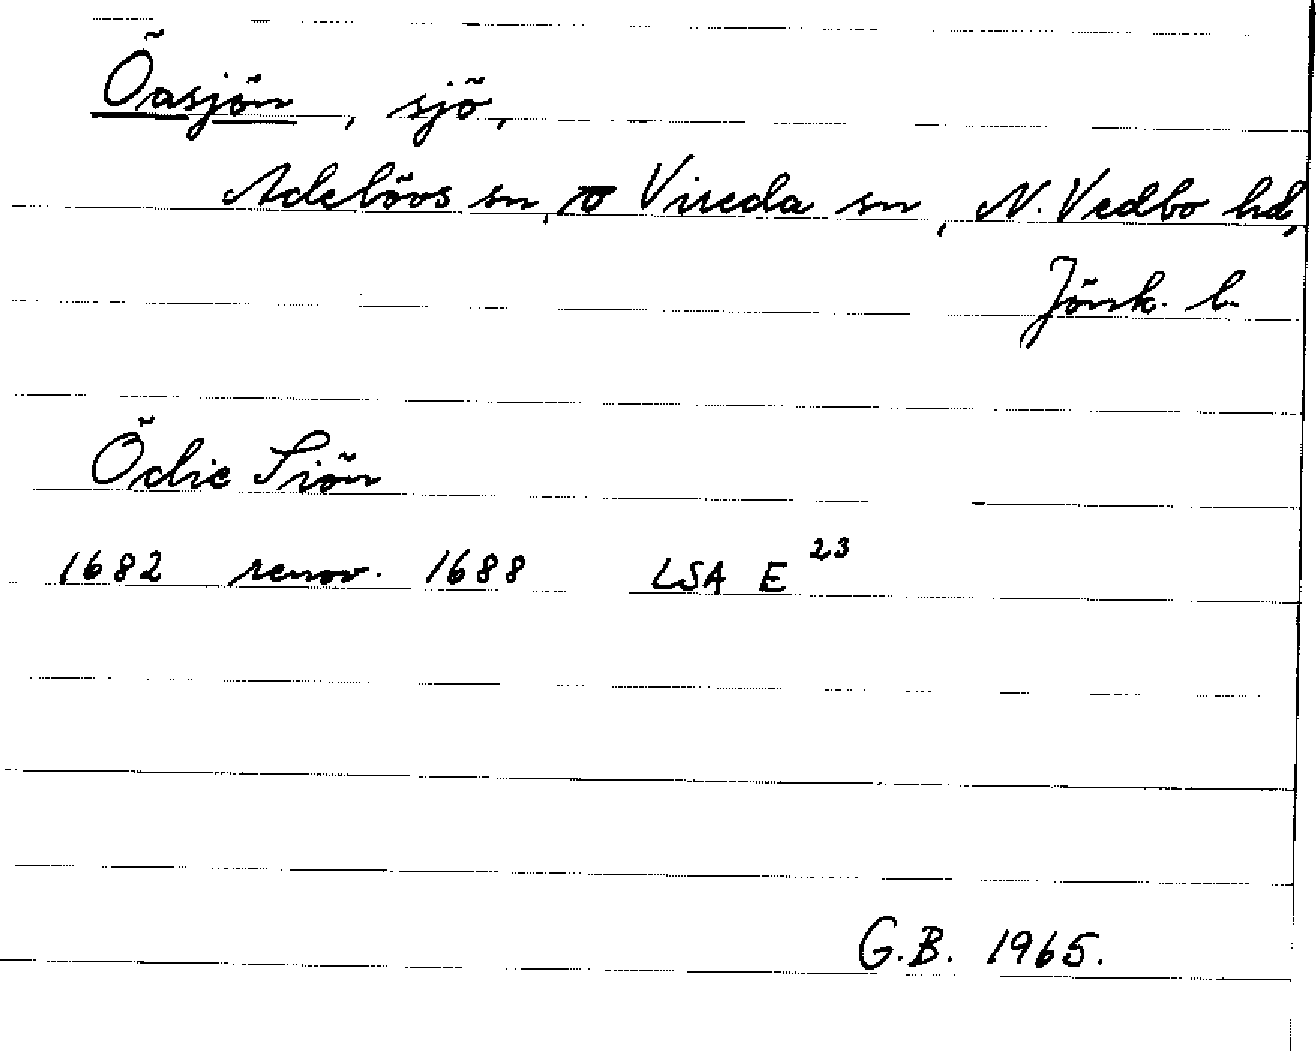 Öasjön, sjö,
Adelövs sn, o Vireda sn, N. Vedbo hd,
Jönk. l.
Ödie Siön
1682 renov. 1688 LSA E 23
G.B. 1965.